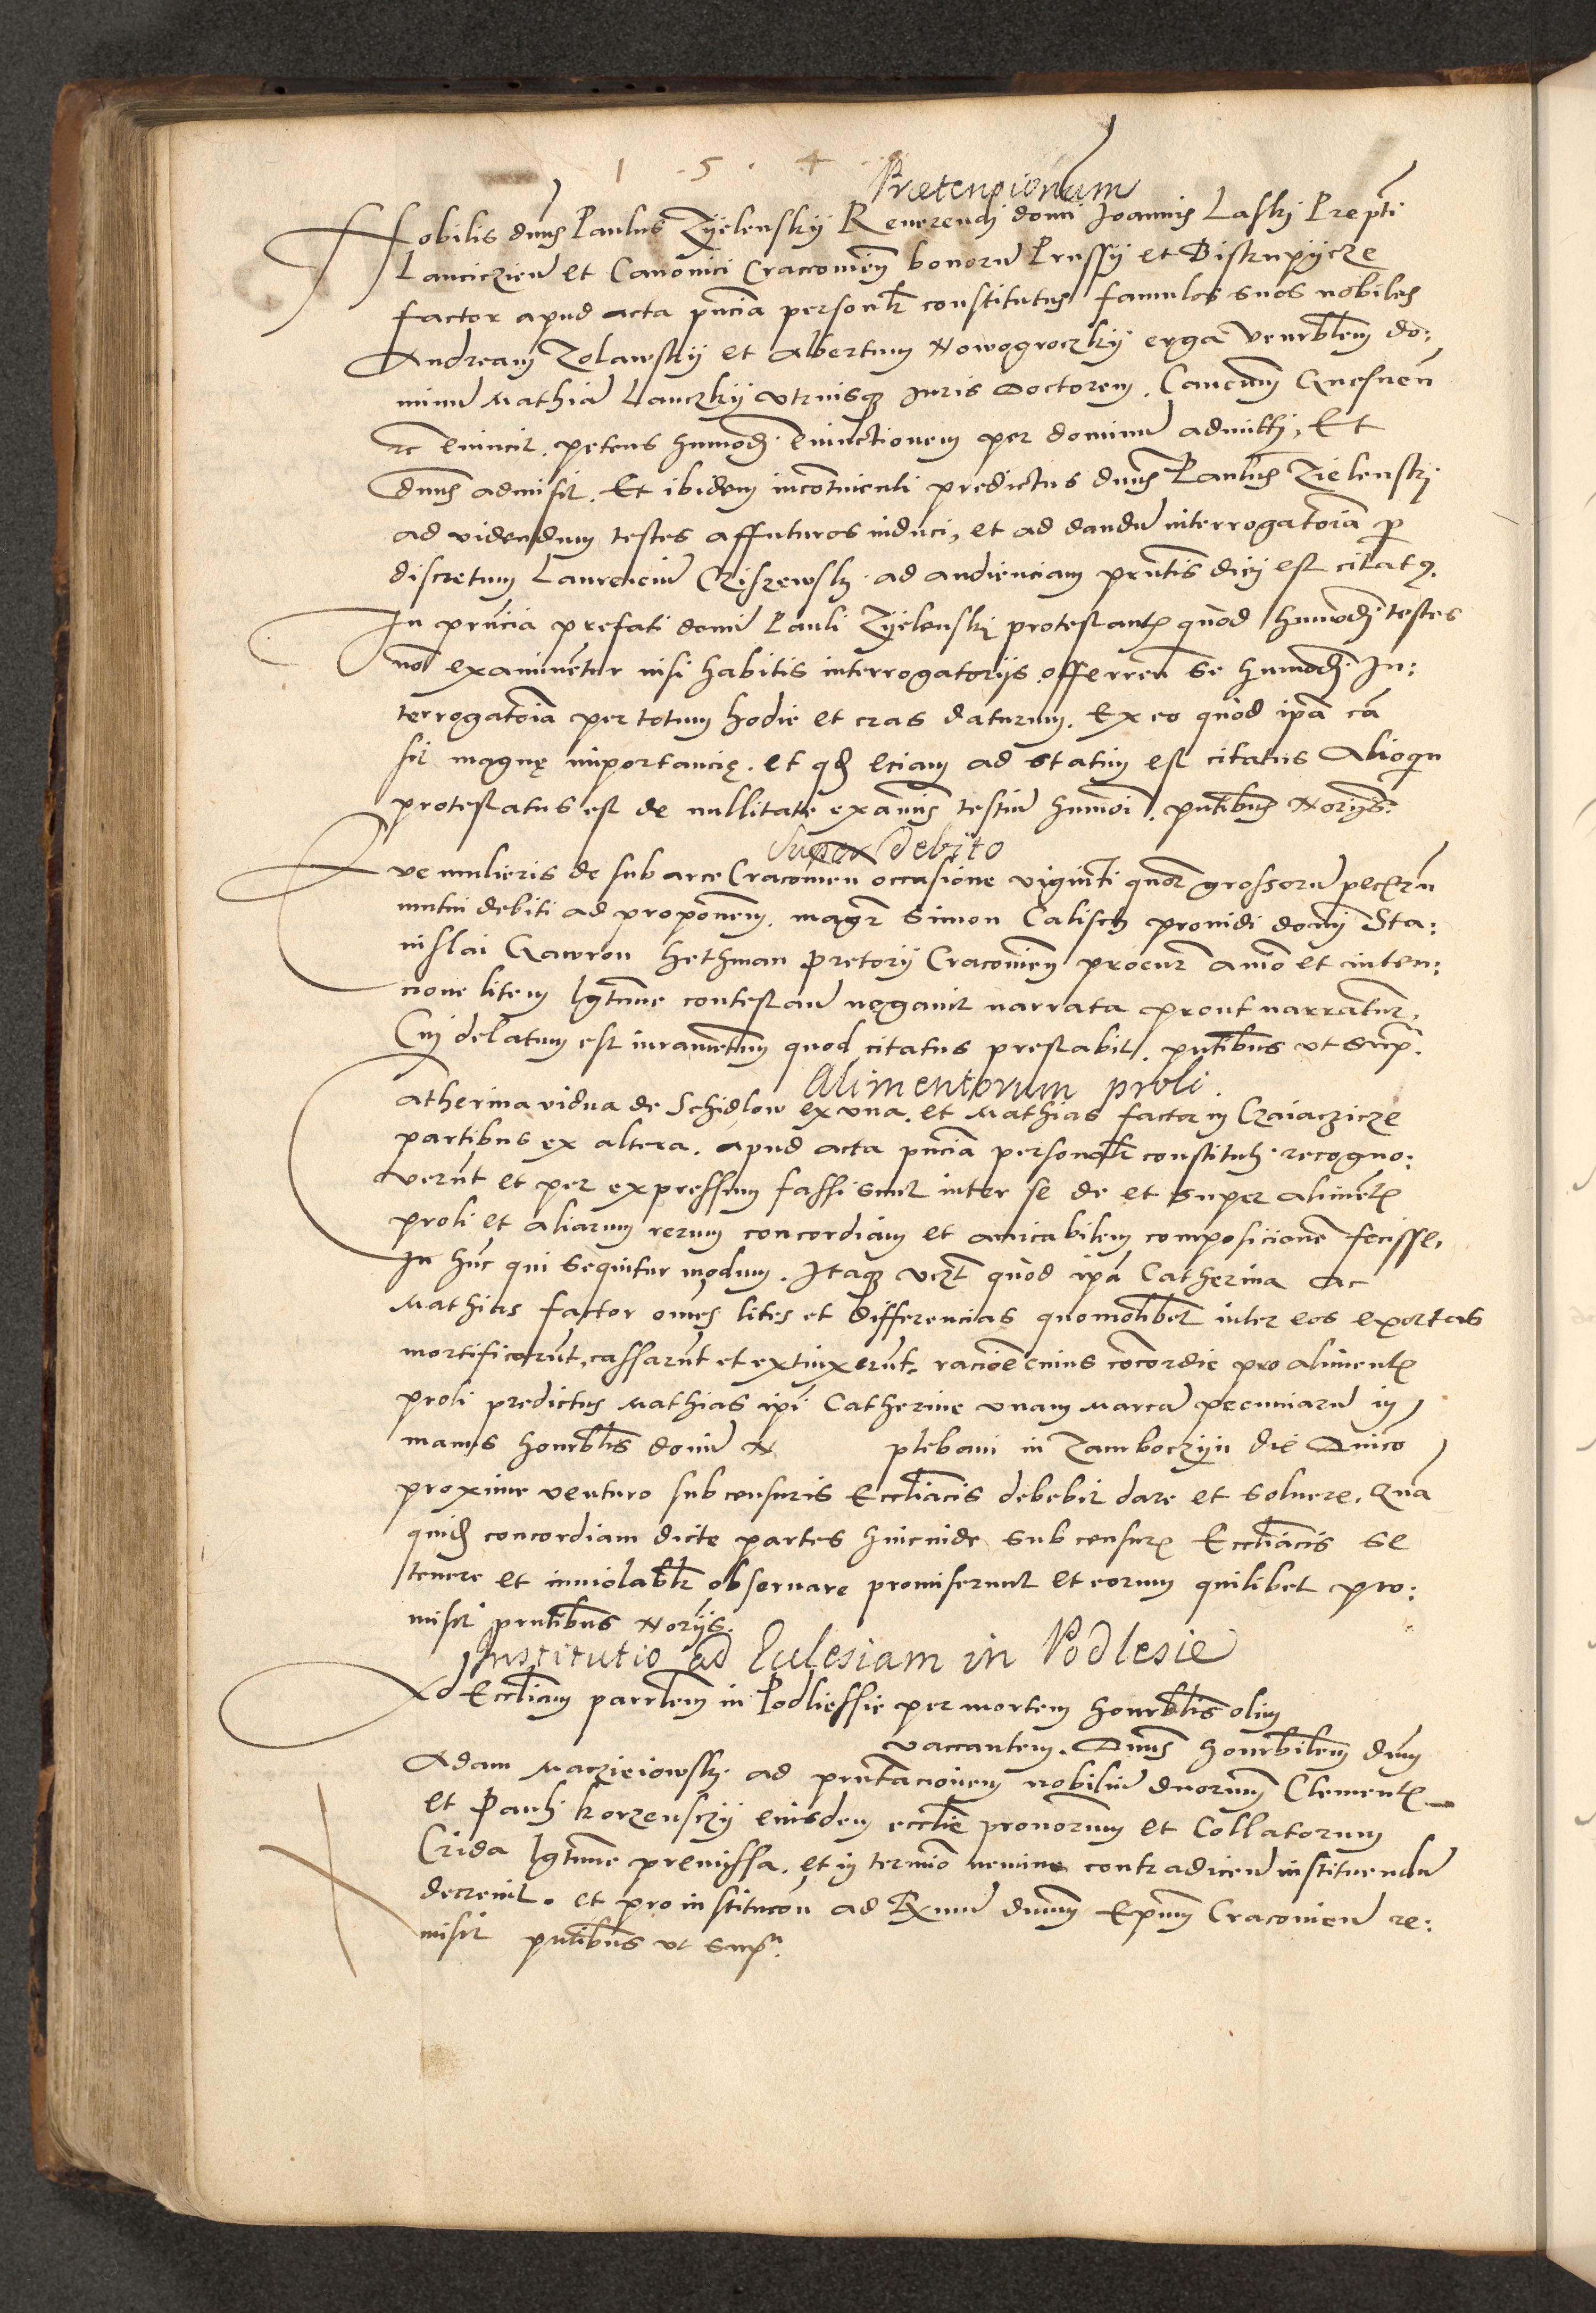 1 . 5 . 4
Prætensionum
Nobilis dnus Paulus Zyelensky Reuerendi domi Joannis Lasky Prepti
Lanciczien et Canonici Cracouien bonorum Prussy et Biskupycze
factor apud acta pncia personlr constitutus famulos suos nobiles
Andream Zolawsky et Albertum Nowogroczky erga venrblem do:
minum Mathiam Lanczky vtriusq Juris Doctorem. Canonicum Gnesnen
rc euincit. petens humodi euinctionem per dominum admitti, Et
dnus admisit. Et ibidem incontinenti predictus dnus Paulus Zielensky
ad videndum testes affuturos induci, et ad dandum interrogatoria p
discretum Laurencium Cziszewsky ad audienciam prntis diei est citatus.
In prncia prefati domini Pauli Zyelensky protestantis quod humodi testes
non examinentur nisi habitis interrogatorijs. offerren se humodi In:
terrogatoria per totum hodie et cras daturum. Ex eo quod ipa ca
sit magnę importancię. et qd eciam ad statim est citatus Alioqn
protestatus est de nullitate examis testium humoi. pntibus Norijs.
Super Debito
Eue mulieris de sub arce Cracouien occasione viginti quor grossorum peccrum
mutui debiti ad proponem. magr Simon Calisch prouidi domi Sta:
nislai Gawron hethman pretorij Cracouien procur animo et inten:
cione litem lgtime contestan negauit narrata prout narrantur.
Cui delatum est iuramentum quod citatus prestabit. pntibus vt supra.
Alimentorum proli.
Catherina vidua de Schidlow ex vna. et Mathias factor in Czaiaczicze
partibus ex altera. apud acta pncia personalr constituti recogno:
verunt et per expressum fassi sunt inter se de et super aliments
proli et aliarum rerum concordiam et amicabilem composicionem fecisse,
In hunc qui sequitur modum. Itaq vczt quod ipa Catherina ac
Mathias factor omes lites et differencias quomolibet inter eos exortas
mortificarunt, cassarunt et extinxerunt, racione cuius concordie pro aliments
proli predictus Mathias ipi Catherine vnam Marcam pecuniarum in
manus honrblis domini N plebani in Zamborzyn die Dnico
proxime venturo sub censuris Eccliacis debebit dare et soluere. Quam
quid concordiam dicte partes hincinde sub censuris Eccliacis se
tenere et inuiolablr obseruare promiserunt et eorum quilibet pro:
misit prntibus Norijs.
Institutio ad Ecclesiam in Podlesie
Ad Eccliam parrlem in Podliessie per mortem honrblis olim
vaccantem. Dnus honrbilem dnum
Adam Maczieiowsky ad prntacionem nobilium duorum Clementis
et Pauli korzensczy eiusdem ecclie pronorum et Collatorum
Crida lgtime premissa. et in termino nemine contradicen instituendum
decreuit. et pro institucon ad Rxmum dnum Epum Cracouien re:
misit pntibus vt supra.